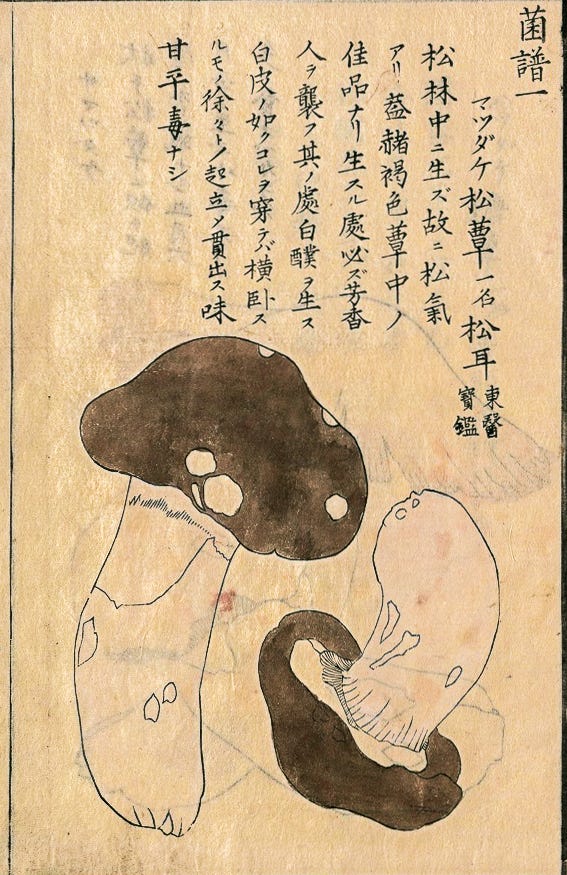 菌譜一
マツダケ 松蕈 一名 松耳 東醫寶鑑
松林中ニ生ズ故ニ松氣
アリ葢赭褐色蕈中ノ
佳品ナリ生スル處必ズ芳香
人ヲ襲フ其ノ處白醭ヲ生ス
白皮ノ如クコレヲ穿テバ横卧ス
ルモノ徐々ト乄起立乄貫出ス味
甘平毒ナシ